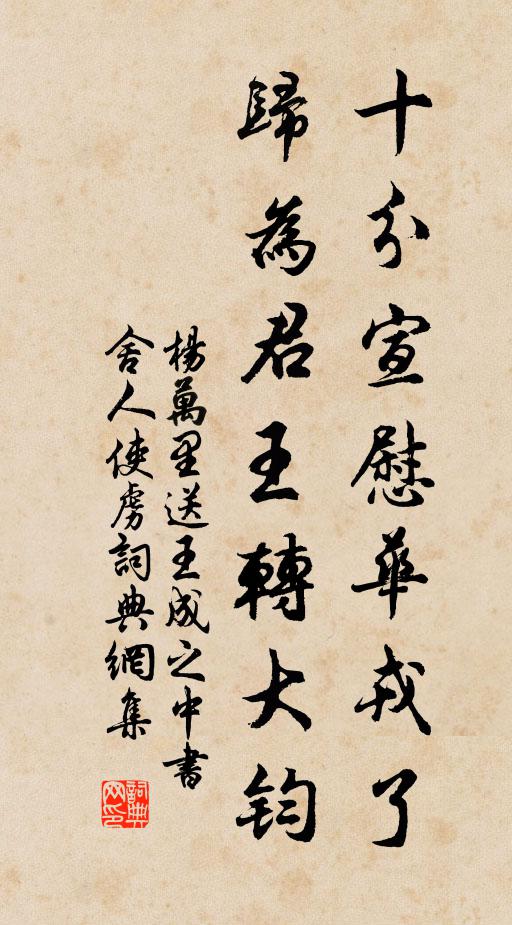 十分宣慰華戎了
歸為君王轉大鈞
楊萬里送王成之中書
舍人使虜詞典網集
詞典
网印